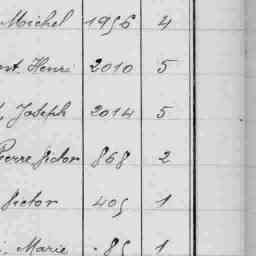 Michel 1956 4
nt. Henri 2010 5
, Joseph 2014 5
Pierre fictor 868 2
fictor 405 1
, Marie 85 1